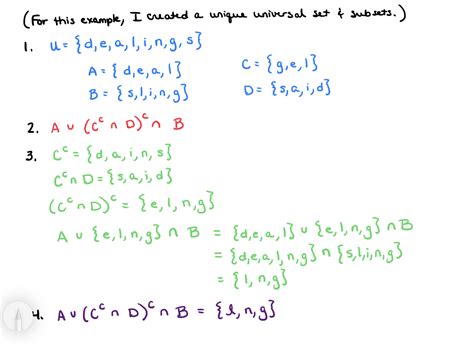 (For this example, I created a unique universal set & subsets.)
1. U = {d,e,a,l,i,n,g,s}
A = {d,e,a,l} C = {g,e,l}
B = {s,l,i,n,g} D = {s,a,i,d}
2. A ∪ (Cᶜ ∩ D)ᶜ ∩ B
3. Cᶜ = {d,a,i,n,s}
Cᶜ ∩ D = {s,a,i,d}
(Cᶜ ∩ D)ᶜ = {e,l,n,g}
A ∪ {e,l,n,g} ∩ B = {d,e,a,l} ∪ {e,l,n,g} ∩ B
= {d,e,a,l,n,g} ∩ {s,l,i,n,g}
= {l,n,g}
4. A ∪ (Cᶜ ∩ D)ᶜ ∩ B = {l,n,g}